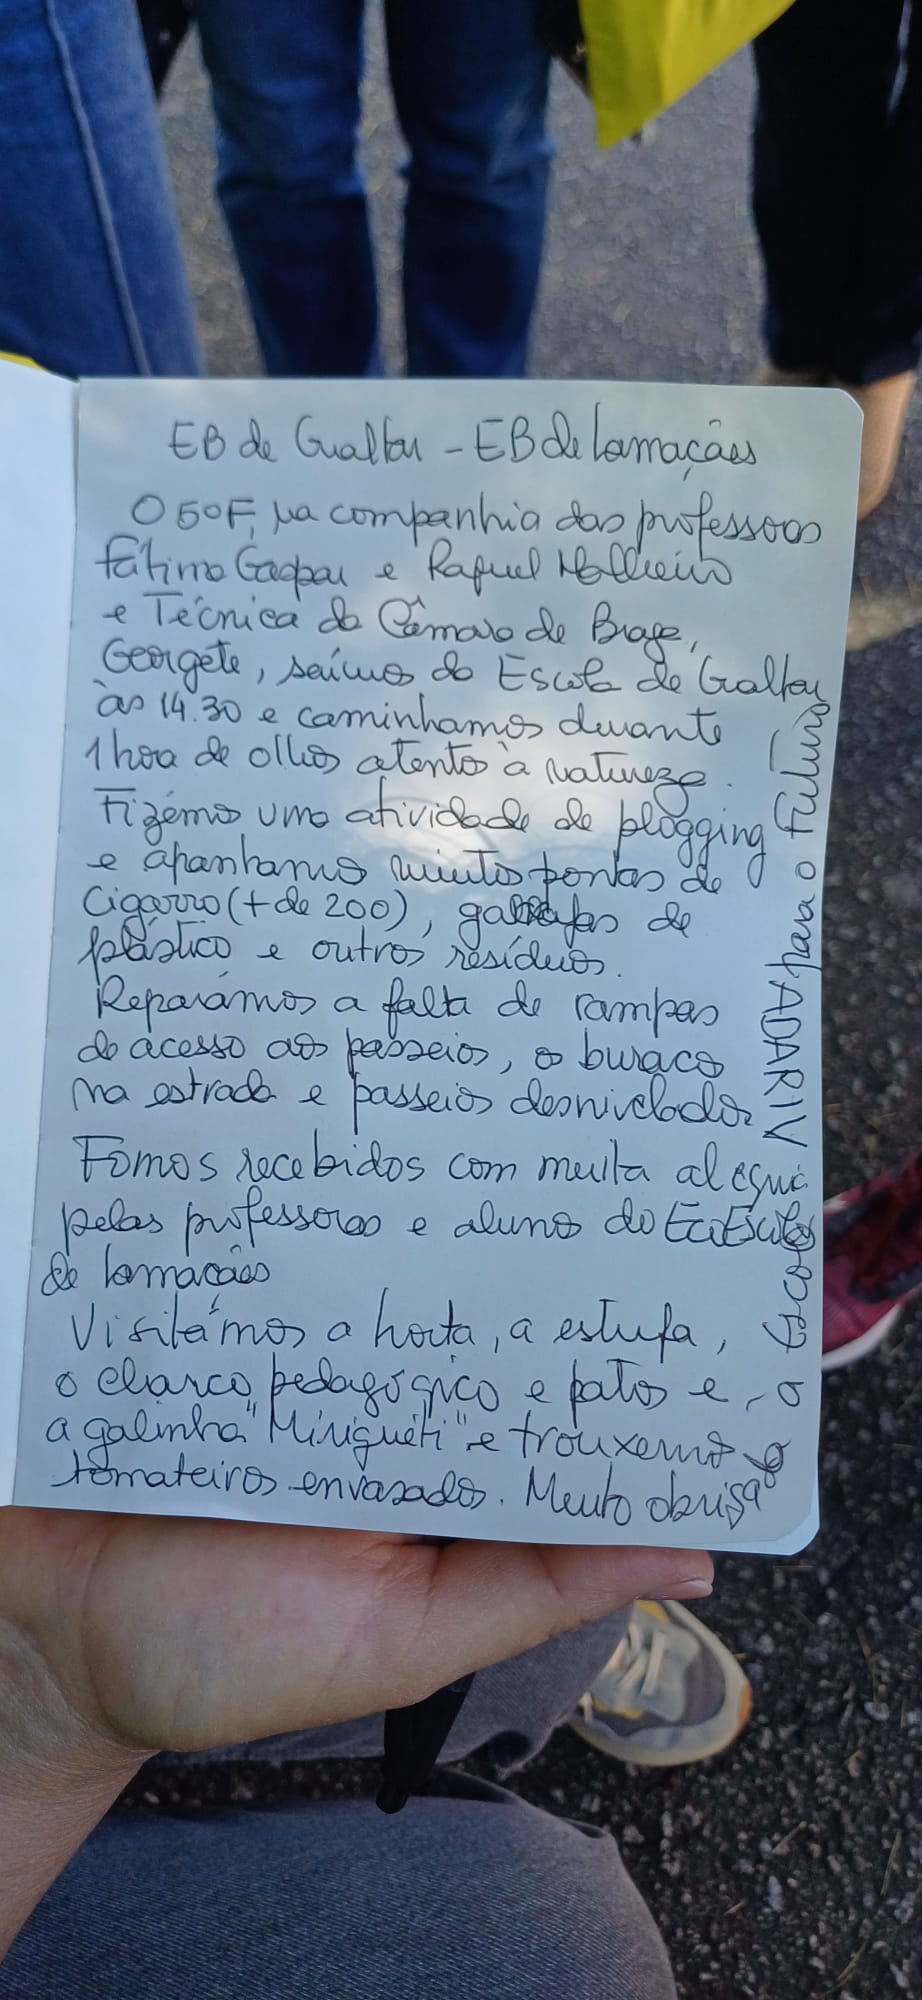 EB de Gualtar - EB de Lamaçães
O 5ºF, na companhia das professoras
Fátima Gaspar e Raquel Malheiro
e Técnica da Câmara de Braga,
Georgete, saímos da Escola de Gualtar
às 14.30 e caminhamos durante
1 hora de olhos atentos à natureza.
Fizémos uma atividade de plogging
e apanhamos muitas pontas de
cigarro (+ de 200), garrafas de
plástico e outros resíduos.
Reparámos a falta de rampas
de acesso aos passeios, o buraco
na estrada e passeios desnivelados.
Fomos recebidos com muita alegria
pelas professoras e alunos do EcoEscolas
de Lamaçães
Visitámos a horta, a estufa,
o charco pedagógico e patos e
a galinha "Miriguéti" e trouxemos
tomateiros envasados. Muito obrigado
a Escola, ADARIV para o Futuro